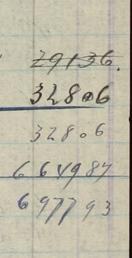 29136.
32806
32806
664987
697793